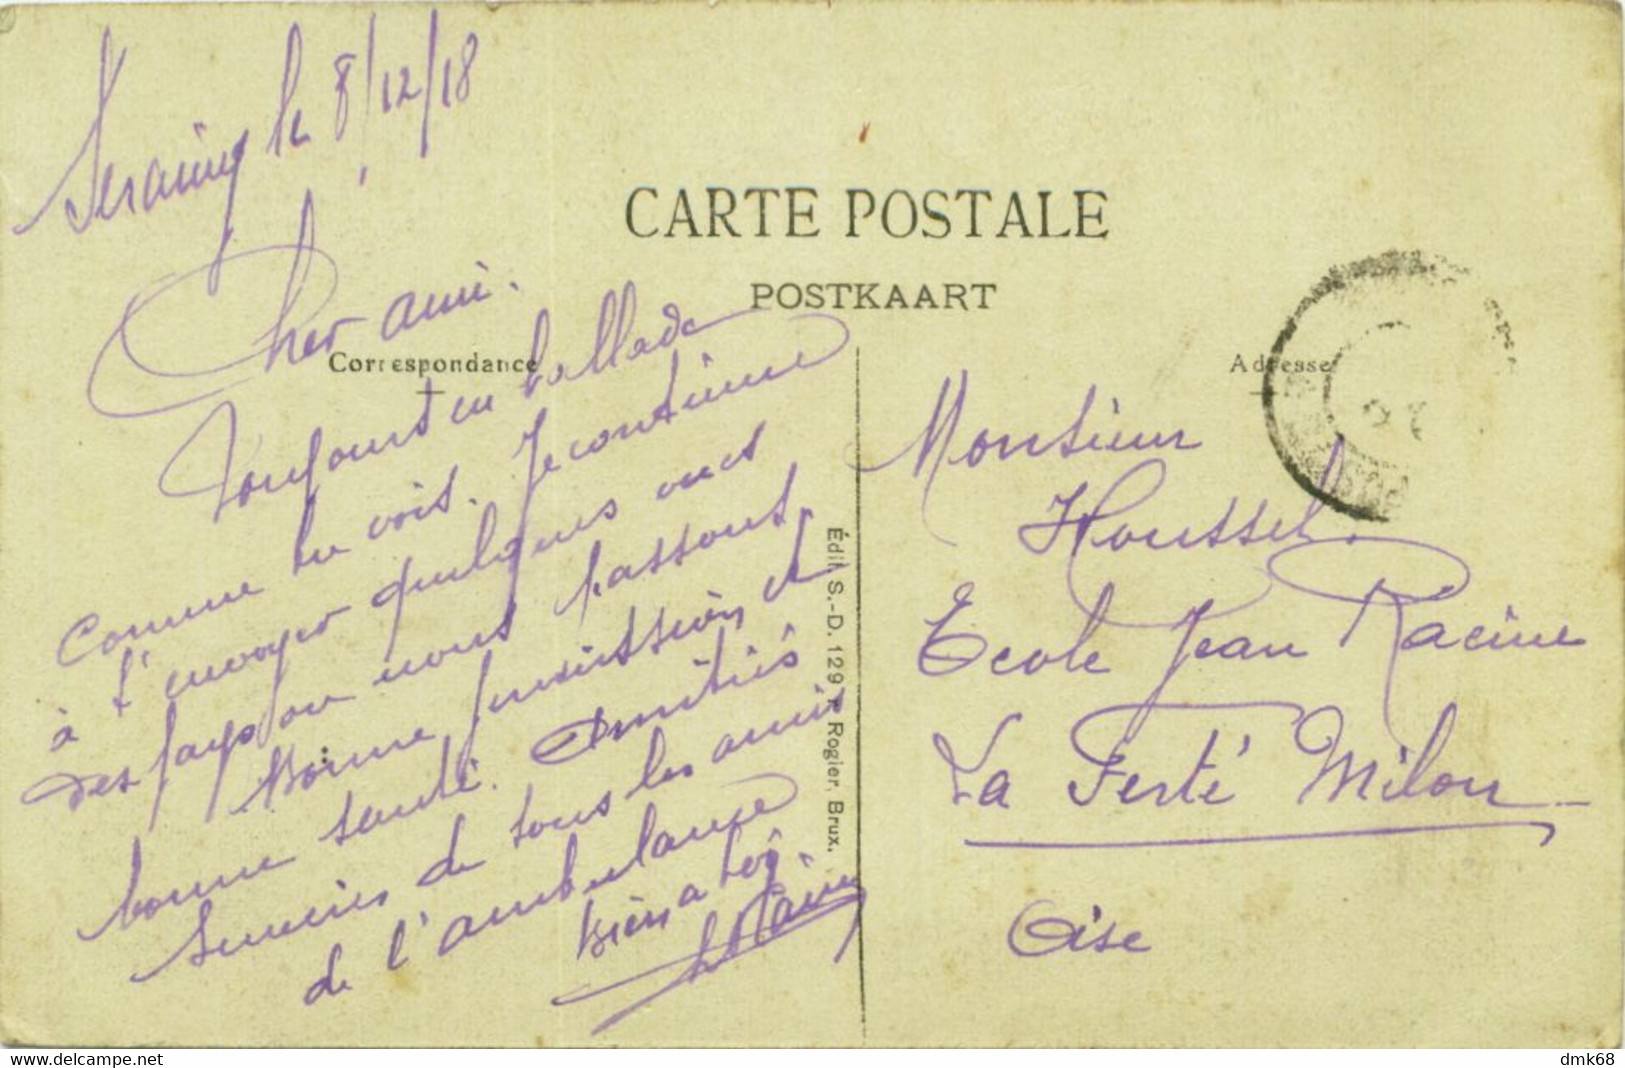 Seraing le 8/12/18
CARTE POSTALE
POSTKAART
Correspondance
Adresse
Cher ami.
Toujours en ballade
comme tu vois. Je continue
à t'envoyer quelques vues
des pays ou nous passons.
Bonne et
bonne santé. Amitiés
sincères de tous les amis
de l'ambulance
Bien a toi.
Monsieur
Houssel.
Ecole Jean Racine
La Ferté Milon
Oise
Édit. S.-D. 129 r. Rogier, Brux.
www.delcampe.net
dmk68